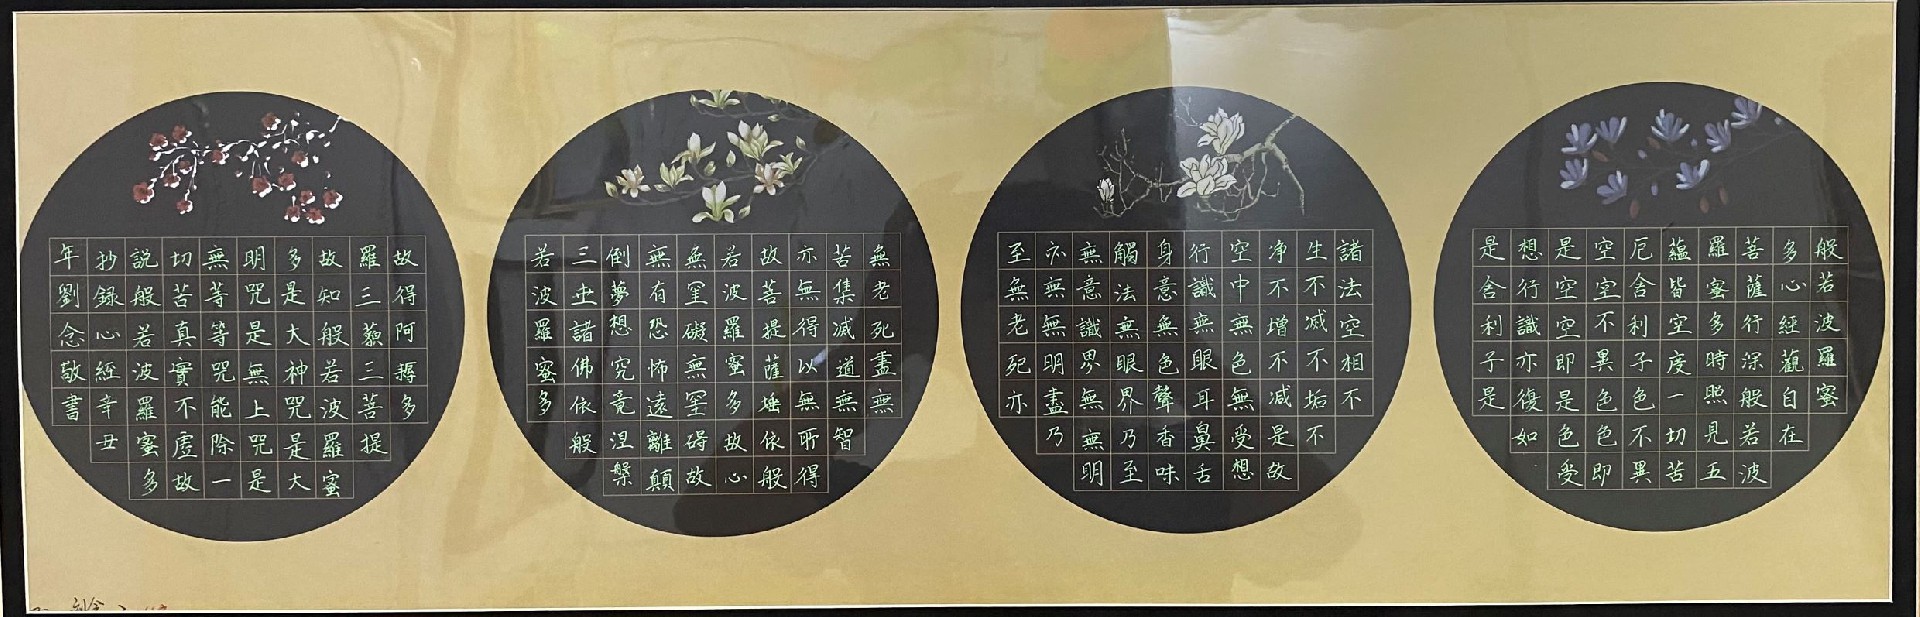 般若波羅蜜
多心經觀自在
菩薩行深般若波
羅蜜多時照見五
蘊皆空度一切苦
厄舍利子色不異
空空不異色色即
是空空即是色受
想行識亦復如
是舍利子是
諸法空相不
生不减不垢不
净不增不减是故
空中無色無受想
行識無眼耳鼻舌
身意無色聲香味
觸法無眼界乃至
無意識界無無明
亦無無明盡乃
至無老死亦
無老死盡無
苦集滅道無智
亦無得以無所得
故菩提薩埵依般
若波羅蜜多故心
無罣礙無罣碍故
無有恐怖遠離顛
倒夢想究竟涅槃
三世諸佛依般
若波羅蜜多
故得阿耨多
羅三藐三菩提
故知般若波羅蜜
多是大神咒是大
明咒是無上咒是
無等等咒能除一
切苦真實不虛故
說般若波羅蜜多
抄錄心經辛丑
年劉念敬書